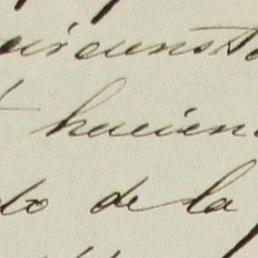 circunsta
hacien
do de la